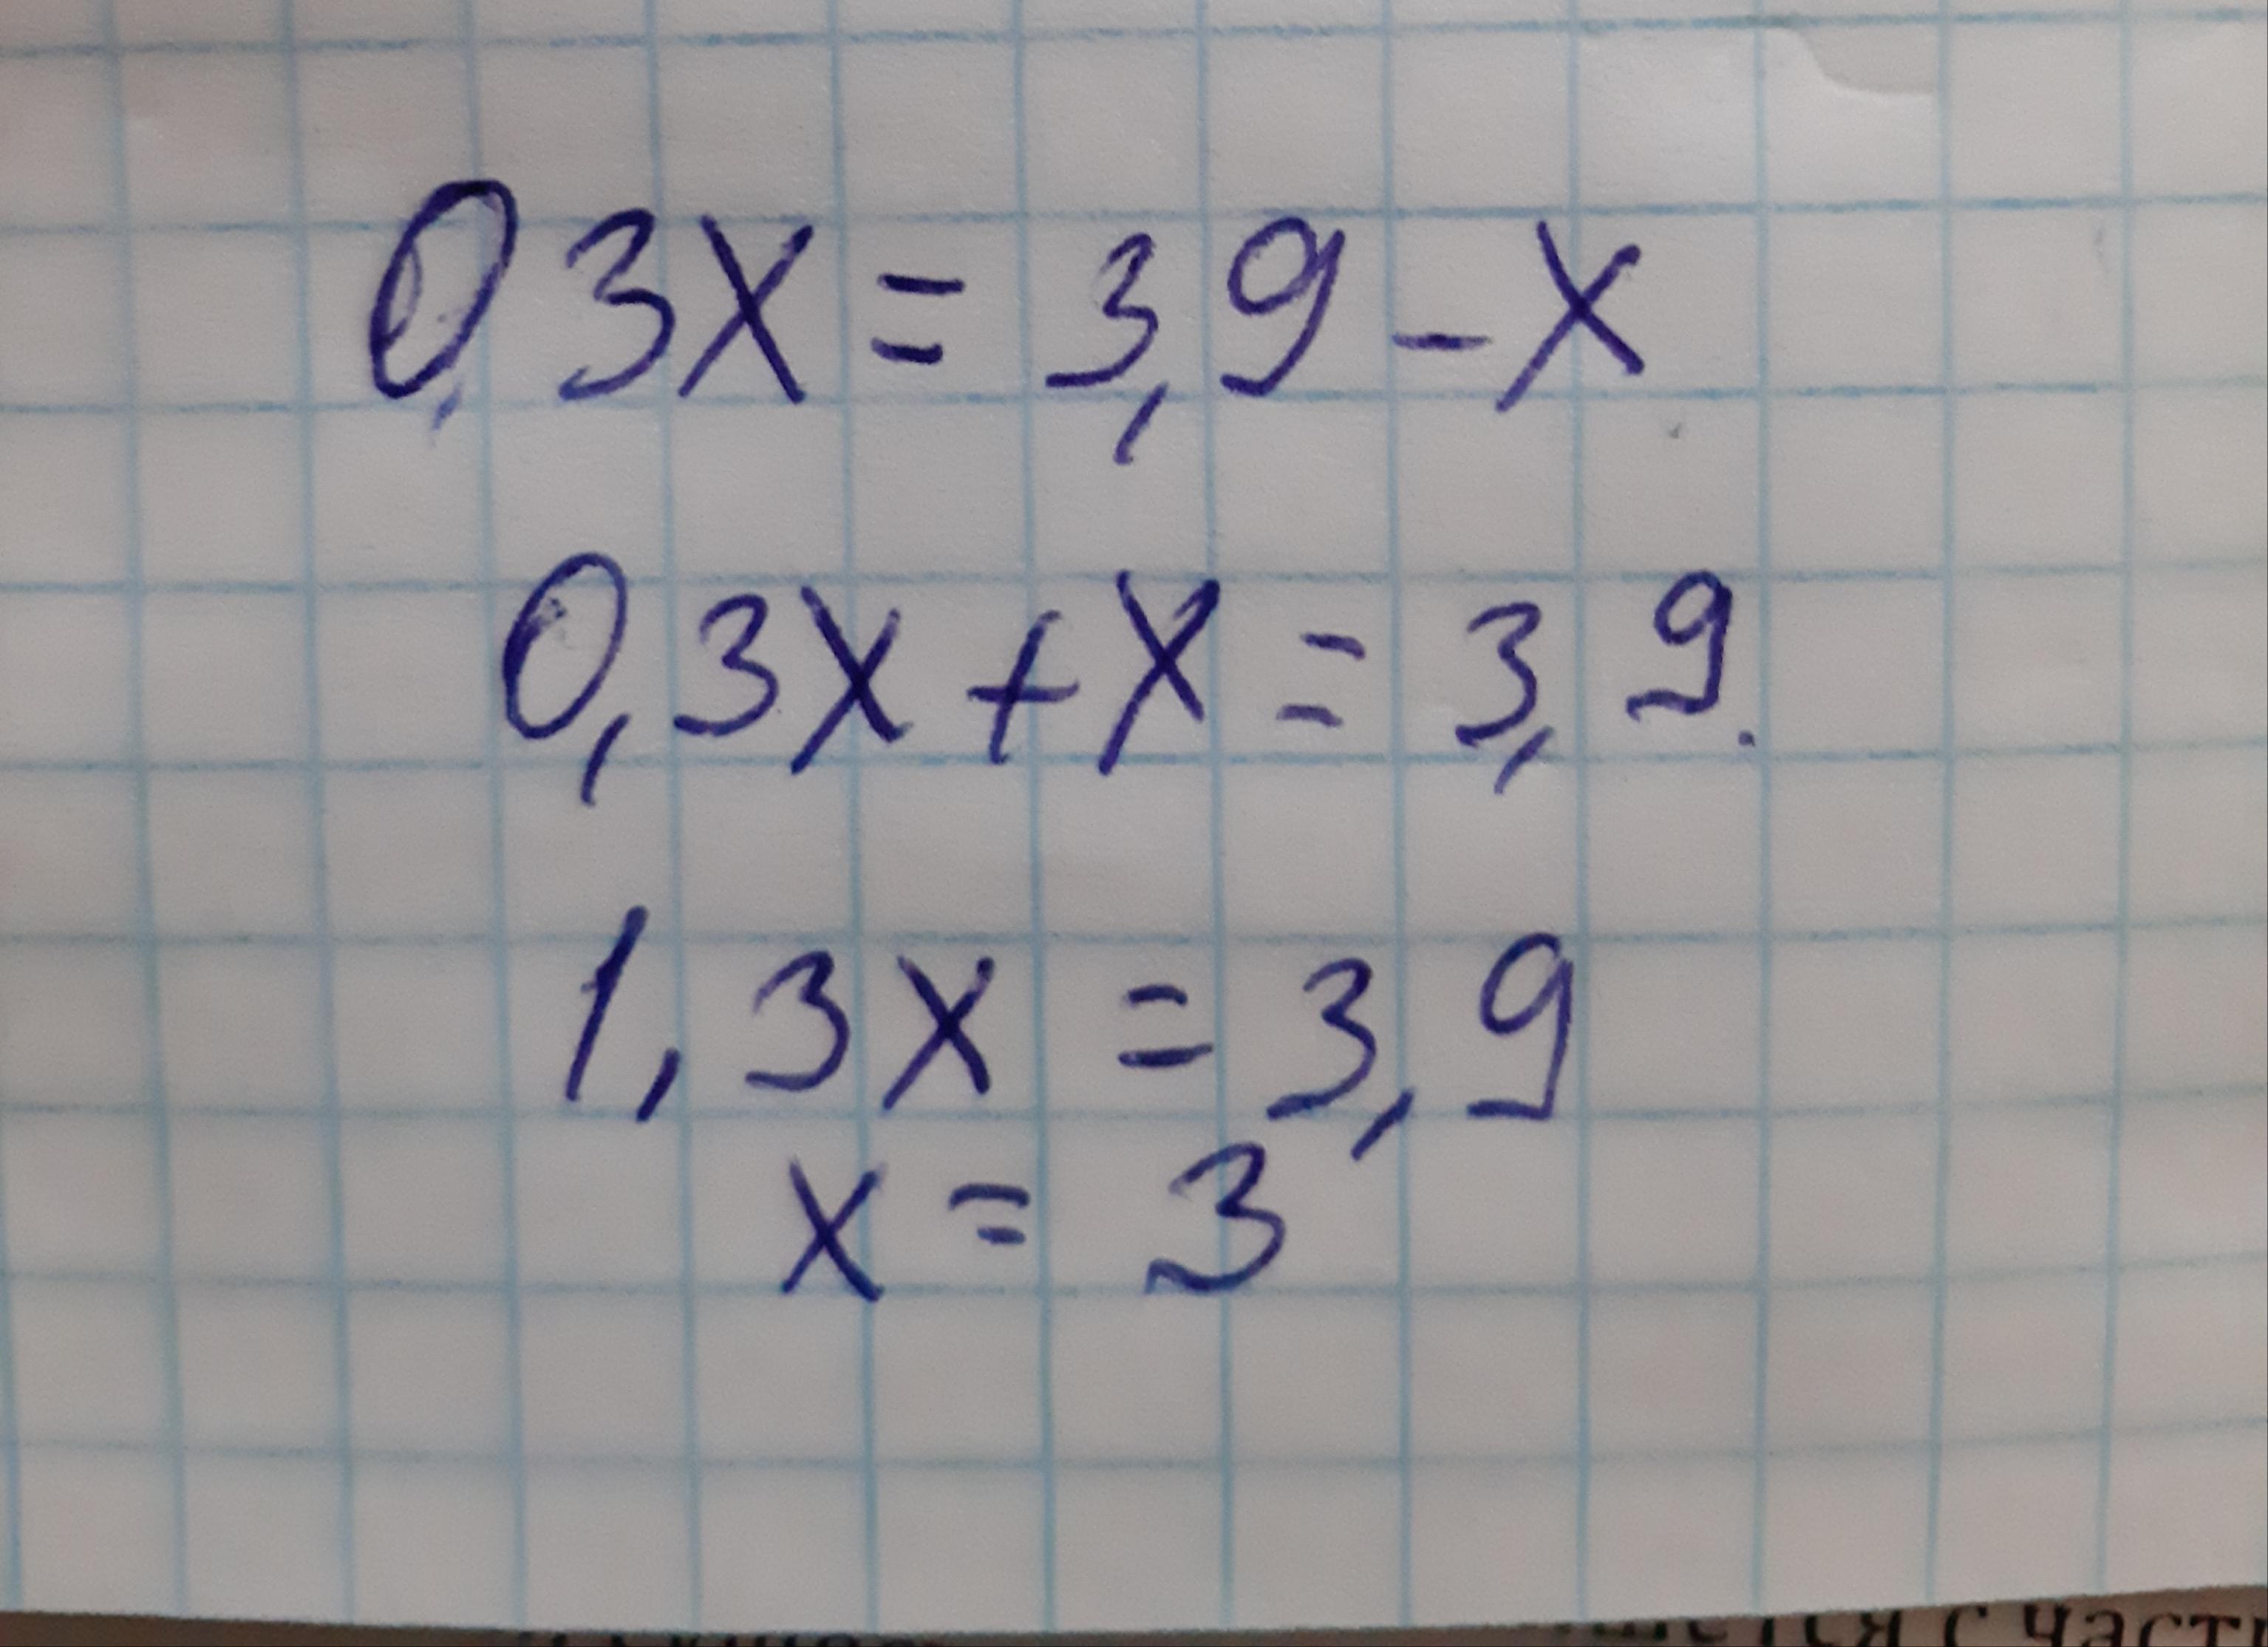 0,3x = 3,9 - x
0,3x + x = 3,9.
1,3x = 3,9
x = 3
с част